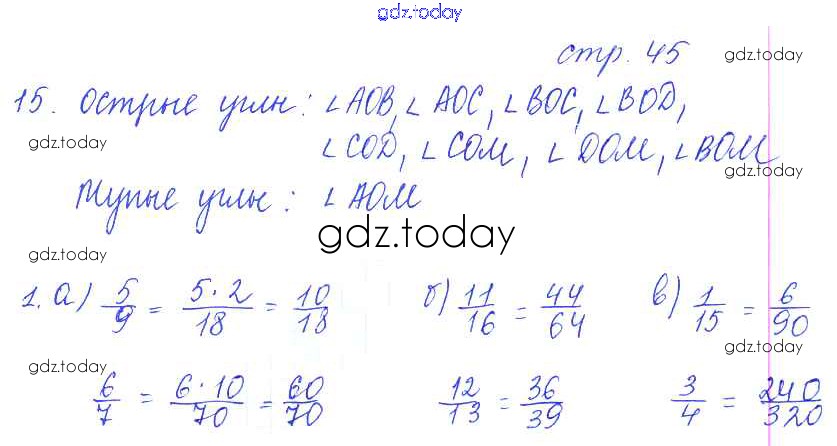 gdz.today
стр. 45
gdz.today
15. Острые углы: ∠AOB, ∠AOC, ∠BOC, ∠BOD,
gdz.today
∠COD, ∠COM, ∠DOM, ∠BOM
gdz.today
Тупые углы: ∠AOM
gdz.today
gdz.today
1. а) 5/9 = 5·2/18 = 10/18 б) 11/16 = 44/64 в) 1/15 = 6/90
gdz.today
gdz.today
6/7 = 6·10/70 = 60/70 12/13 = 36/39 3/4 = 240/320